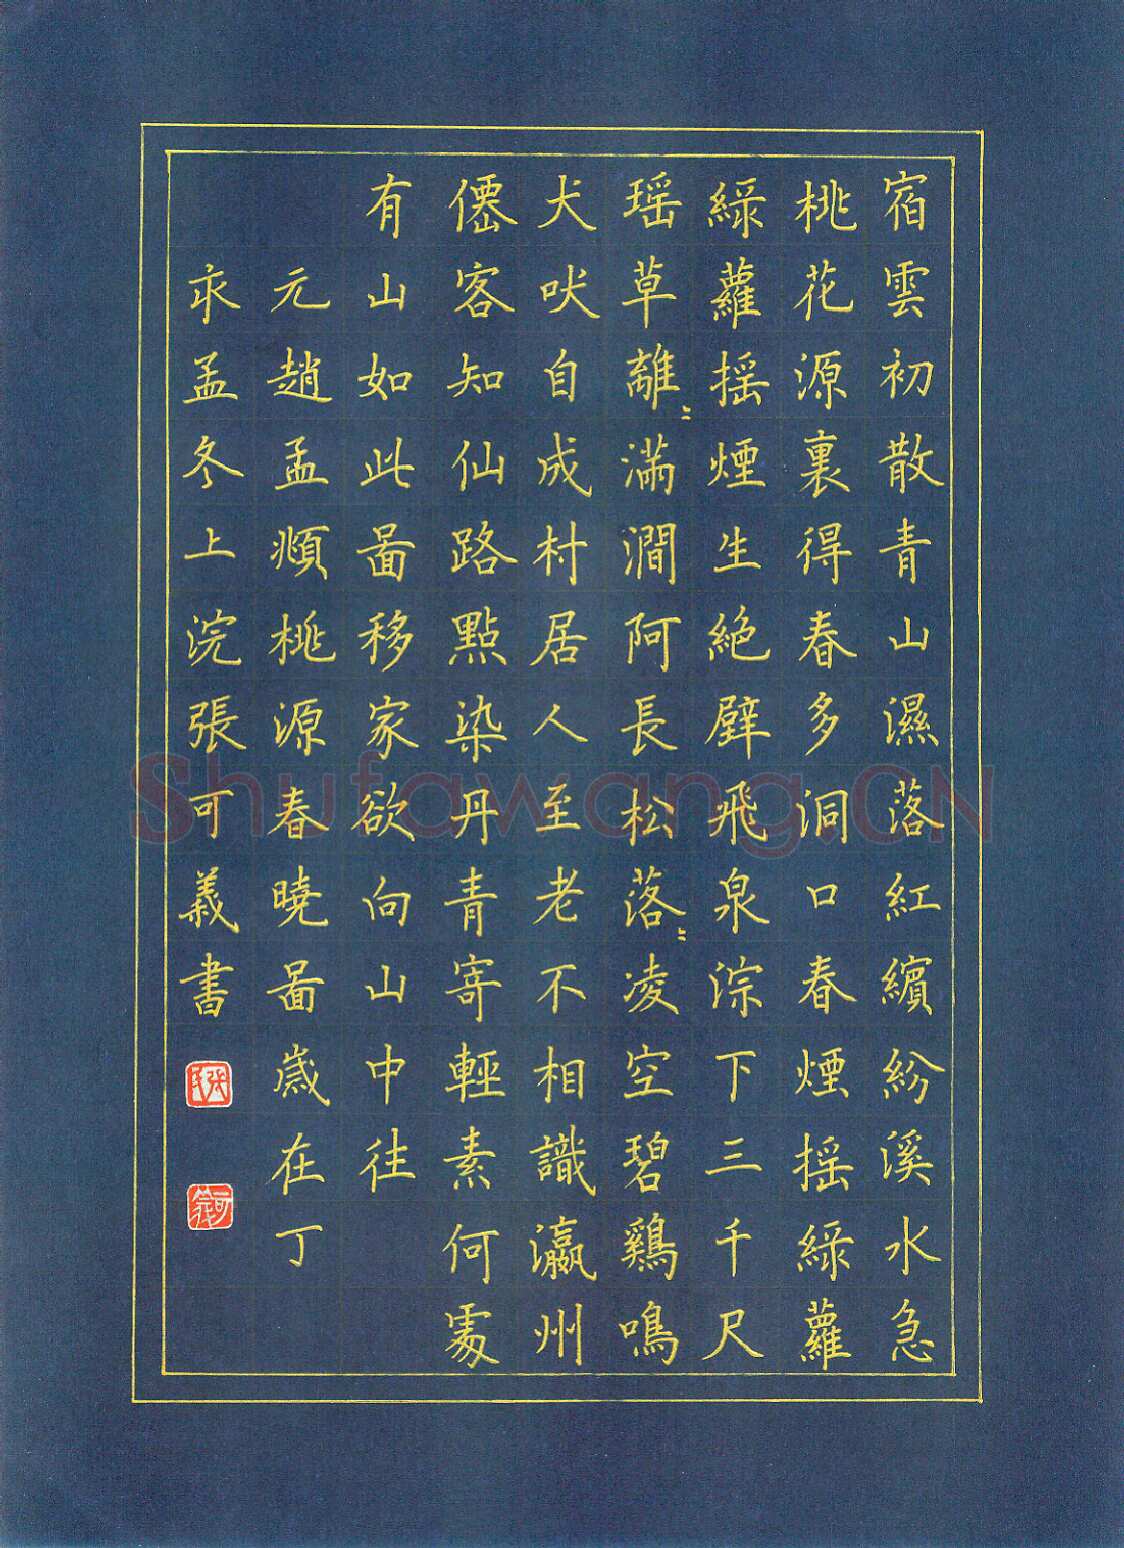 宿雲初散青山濕落紅繽紛溪水急
桃花源裏得春多洞口春煙摇緑蘿
緑蘿摇煙生絕壁飛泉淙下三千尺
瑶草離〻滿澗阿長松落〻凌空碧鷄鳴
犬吠自成村居人至老不相識瀛州
僊客知仙路點染丹青寄輕素何處
有山如此啚移家欲向山中往
元趙孟頫桃源春曉啚歲在丁
亥孟冬上浣張可義書
張氏
可義
Shufawang.CN